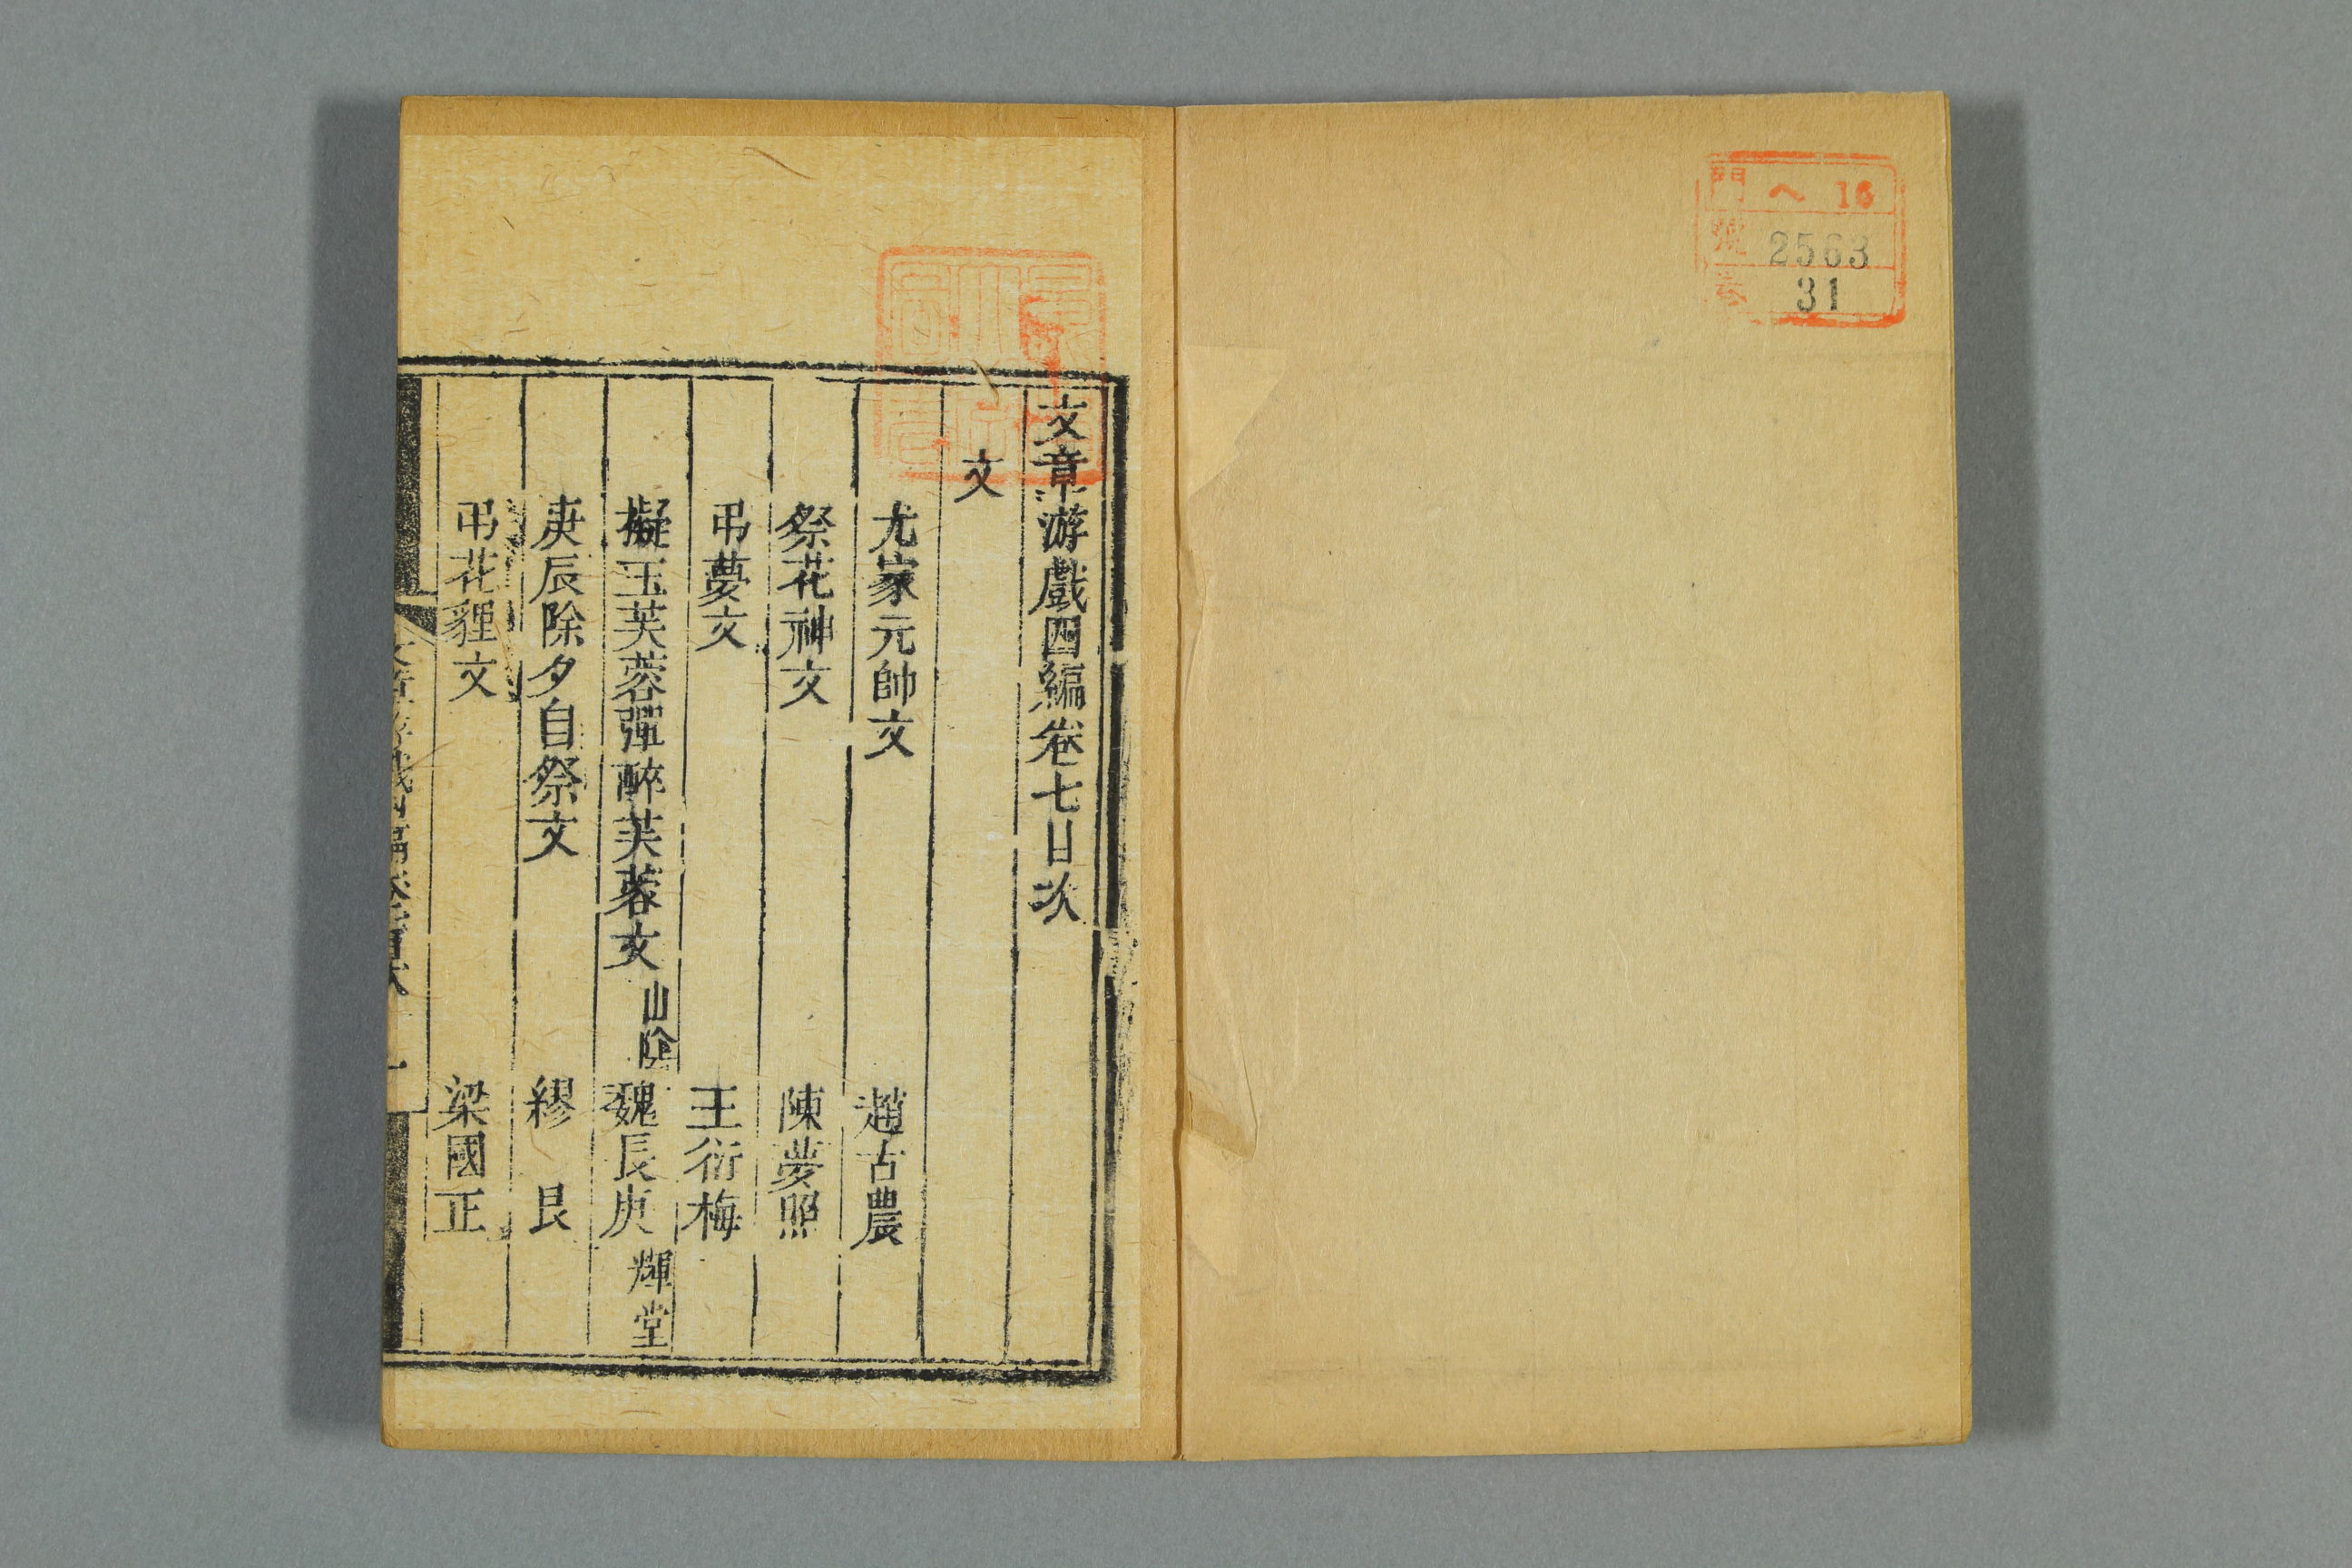 門 ヘ 16
號 2563
卷 31
文章游戲四編卷七目次
文
尤家元帥文 趙古農
祭花神文 陳夢照
弔夢文 王衍梅
擬玉芙蓉彈醉芙蓉文 山陰 魏長庚 輝堂
庚辰除夕自祭文 繆艮
弔花貍文 梁國正